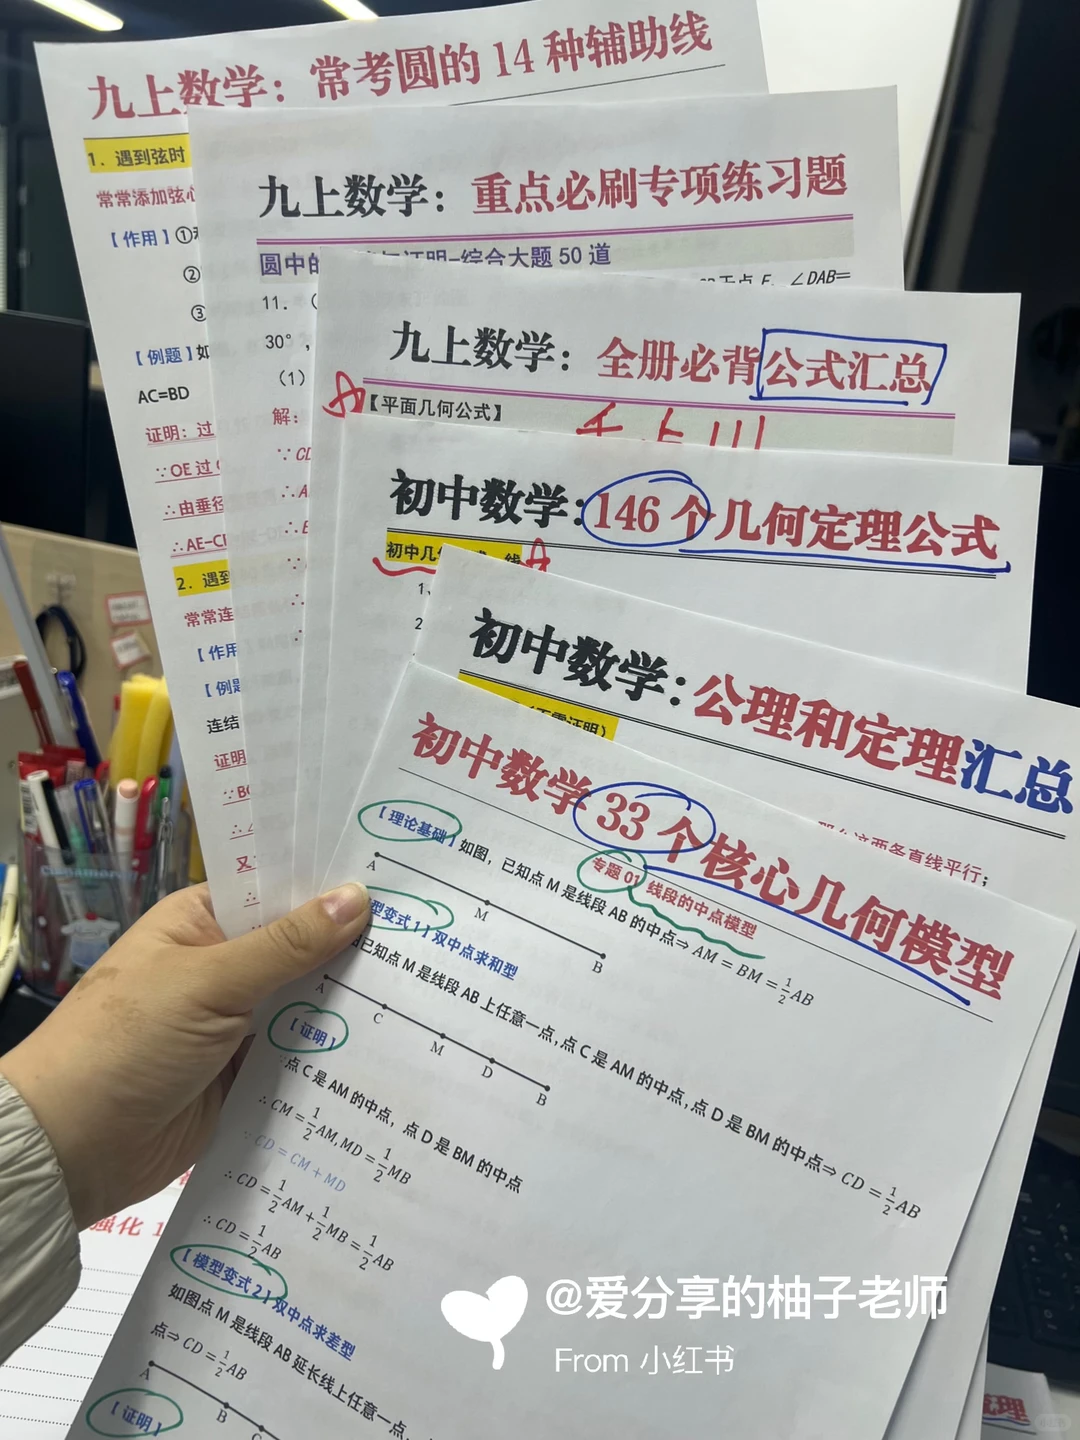 九上数学：常考圆的 14 种辅助线
1. 遇到弦时
常常添加弦心
【作用】①
②
③
【例题】如
AC=BD
证明：过
∵OE 过
∴由垂径
∴AE-C
2. 遇到
常常连
【作用
【例题
连结
证明
∵BC
∴∠
又
∴
九上数学：重点必刷专项练习题
圆中的 证明-综合大题 50 道
11. （
于点 F，∠DAB=
30°，
（1）
解：
∵CD
∴A
∴E
∵
∴
∴
九上数学：全册必背公式汇总
【平面几何公式】
初中数学：146 个几何定理公式
初中几 线
1、
2
初中数学：公理和定理汇总
证明）
那么这两条直线平行；
初中数学 33 个核心几何模型
专题 01 线段的中点模型
【理论基础】如图，已知点 M 是线段 AB 的中点⇒ AM = BM = 1/2 AB
A M B
型变式 1】双中点求和型
已知点 M 是线段 AB 上任意一点，点 C 是 AM 的中点，点 D 是 BM 的中点⇒ CD = 1/2 AB
A C M D B
【证明】
∵点 C 是 AM 的中点，点 D 是 BM 的中点
∴ CM = 1/2 AM, MD = 1/2 MB
∵ CD = CM + MD
∴ CD = 1/2 AM + 1/2 MB = 1/2 AB
∴ CD = 1/2 AB
【模型变式 2】双中点求差型
如图点 M 是线段 AB 延长线上任意一点，
点⇒ CD = 1/2 AB
A B C
【证明】
强化 1
@爱分享的柚子老师
From 小红书